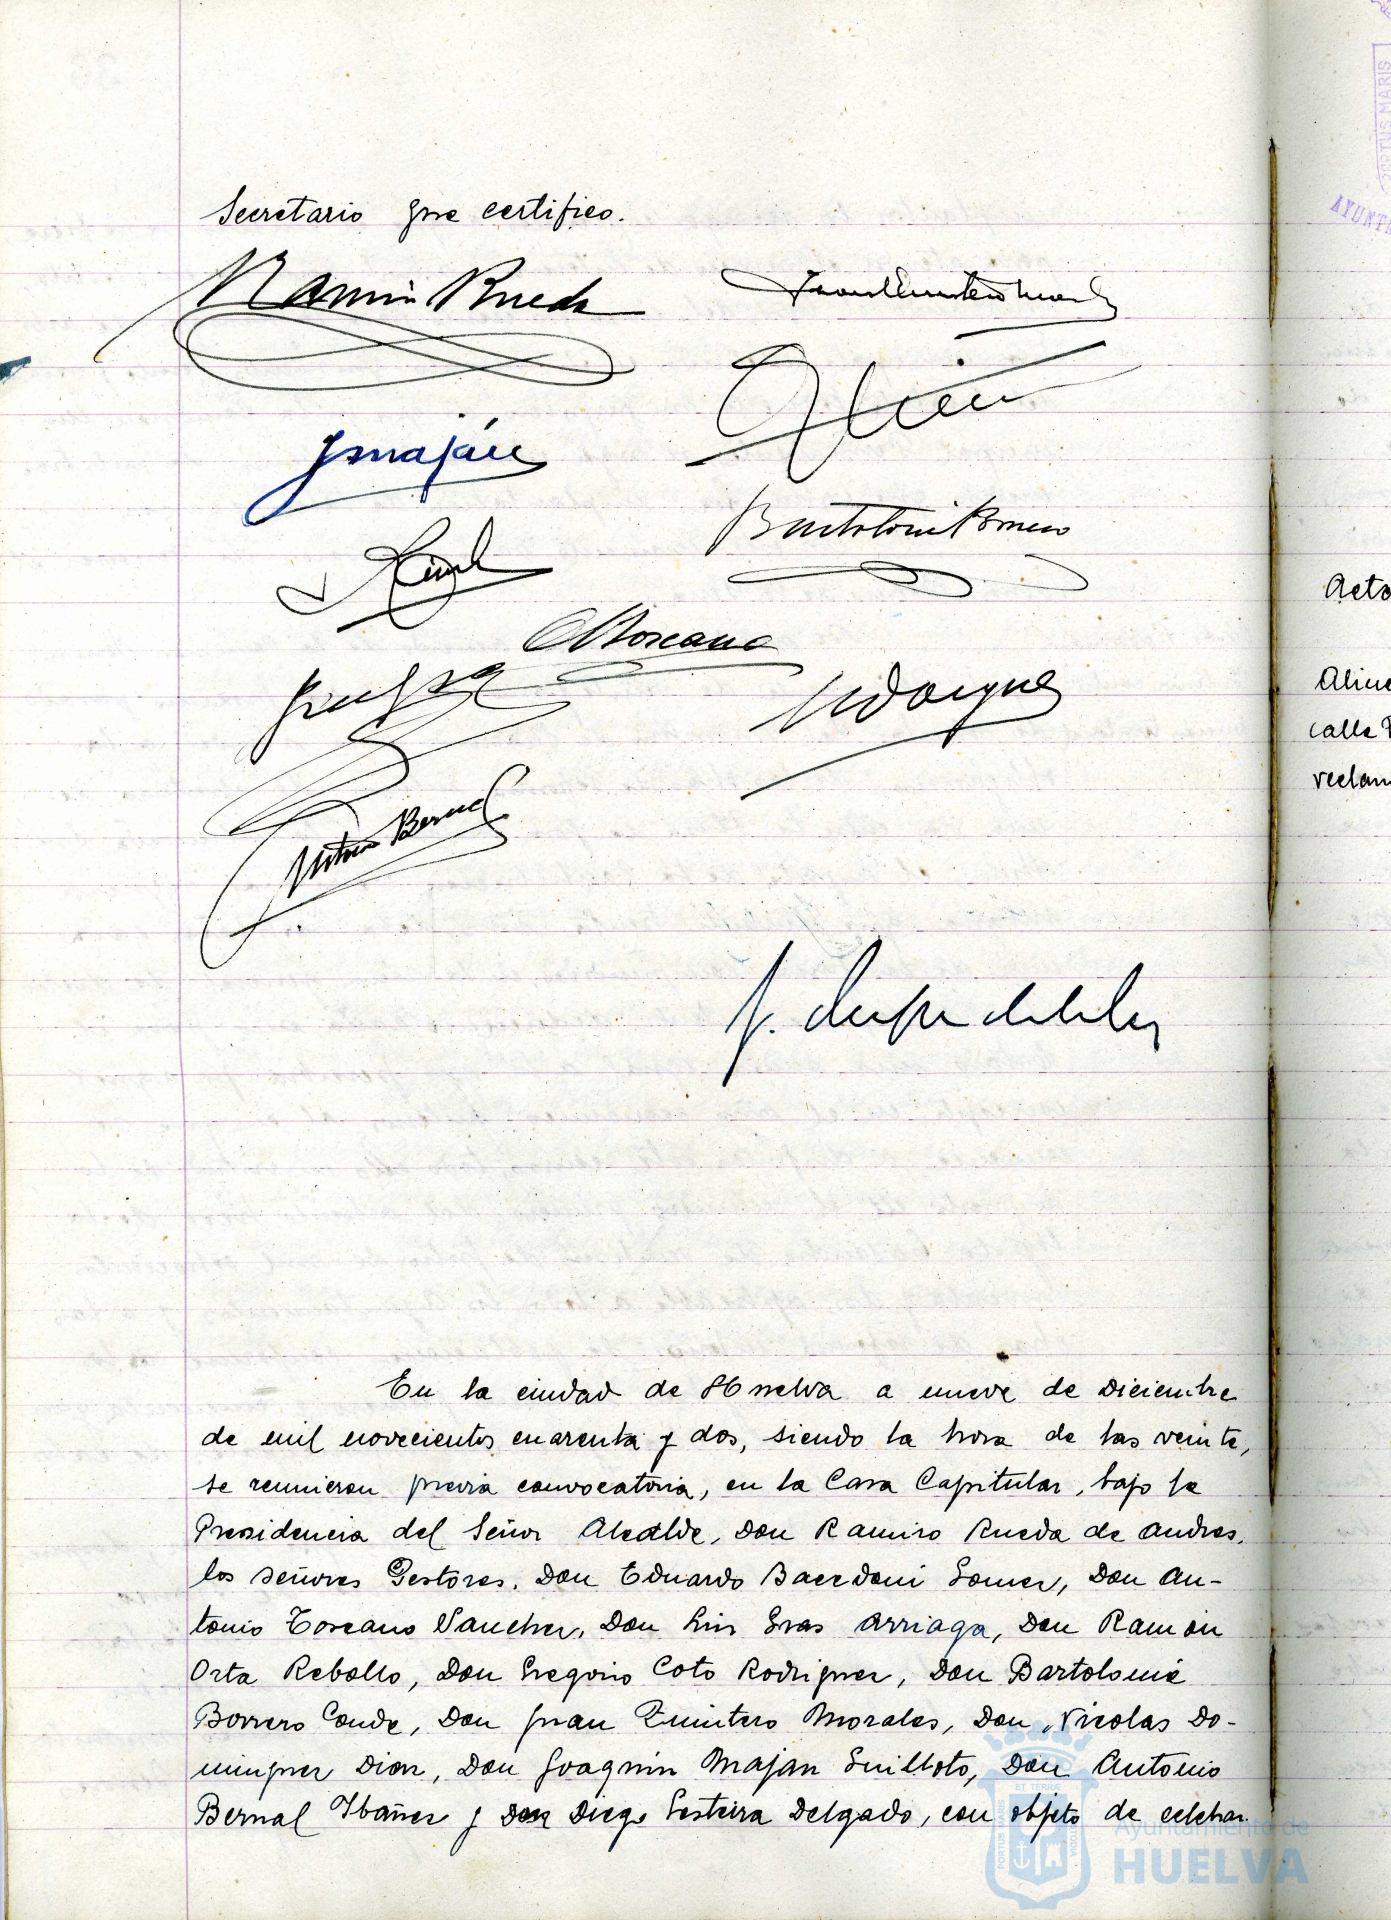 Secretario que certifico.
Ramiro Rueda
Juan Quintero Morales
J Maján
Bartolomé Borrero
A Toscano
N Domgues
Antonio Bernal
En la ciudad de Huelva a nueve de Diciembre
de mil novecientos cuarenta y dos, siendo la hora de las veinte,
se reunieron previa convocatoria, en la Casa Capitular, bajo la
Presidencia del Señor Alcalde, Don Ramiro Rueda de Andres,
los señores Gestores, Don Eduardo Bacedoni Gomez, Don An-
tonio Toscano Sanchez, Don Luis Gras Arriaga, Don Ramón
Orta Rebollo, Don Gregorio Coto Rodriguez, Don Bartolomé
Borrero Conde, Don Juan Quintero Morales, Don Nicolas Do-
minguez Diaz, Don Joaquín Maján Guilloto, Don Antonio
Bernal Ibañez y Don Diego Sesteira Delgado, con objeto de celebrar
Acta
Aline
calle
reclam
PORTUS MARIS
AYUNTA
PORTUS MARIS ET TERRE CUSTODIA
Ayuntamiento de
HUELVA